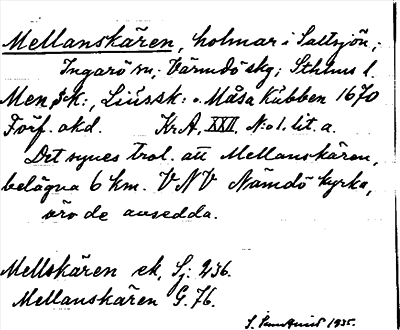 Mellanskären, holmar i Saltsjön,
Ingarö sn, Värmdö skg; Sthlms l.
Men sk:, Liüssk: o. Måsa Kubben 1670
Förf. okd. Kr.A. XXII, No 1. lit. a.
Det synes trol. att Mellanskären,
belägna 6 km. VNV Nämdö kyrka,
äro de avsedda.
Mellskären ek. Sj: 236.
Mellanskären G. 76.
1935.